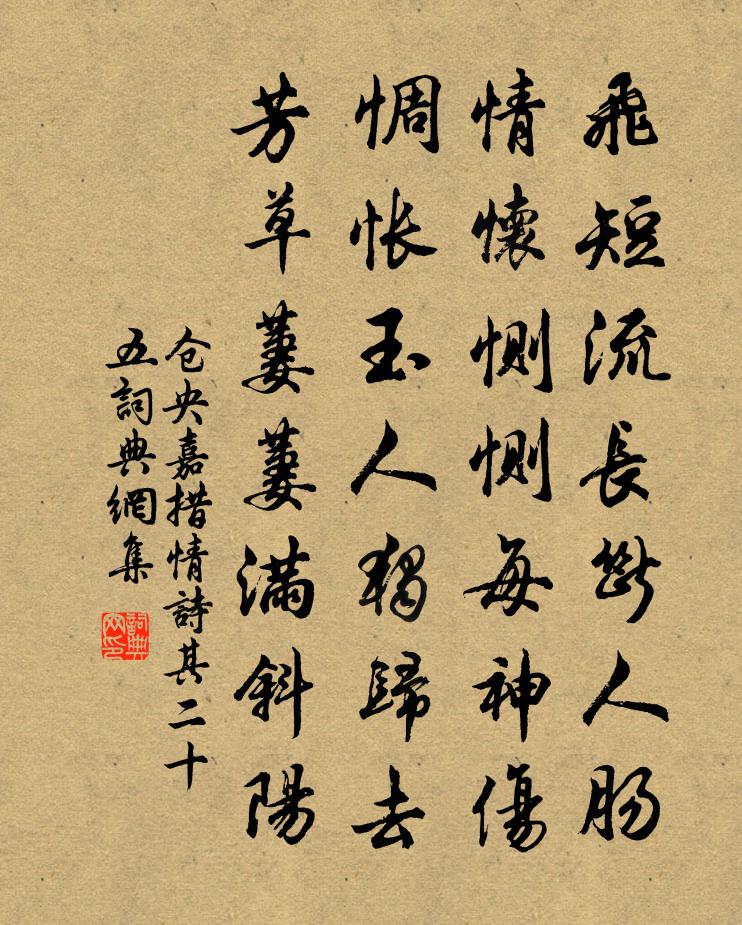 飛短流長斷人肠
情懷惻惻每神傷
惆怅玉人獨歸去
芳草萋萋滿斜陽
仓央嘉措情詩其二十
五詞典網集
詞典網印